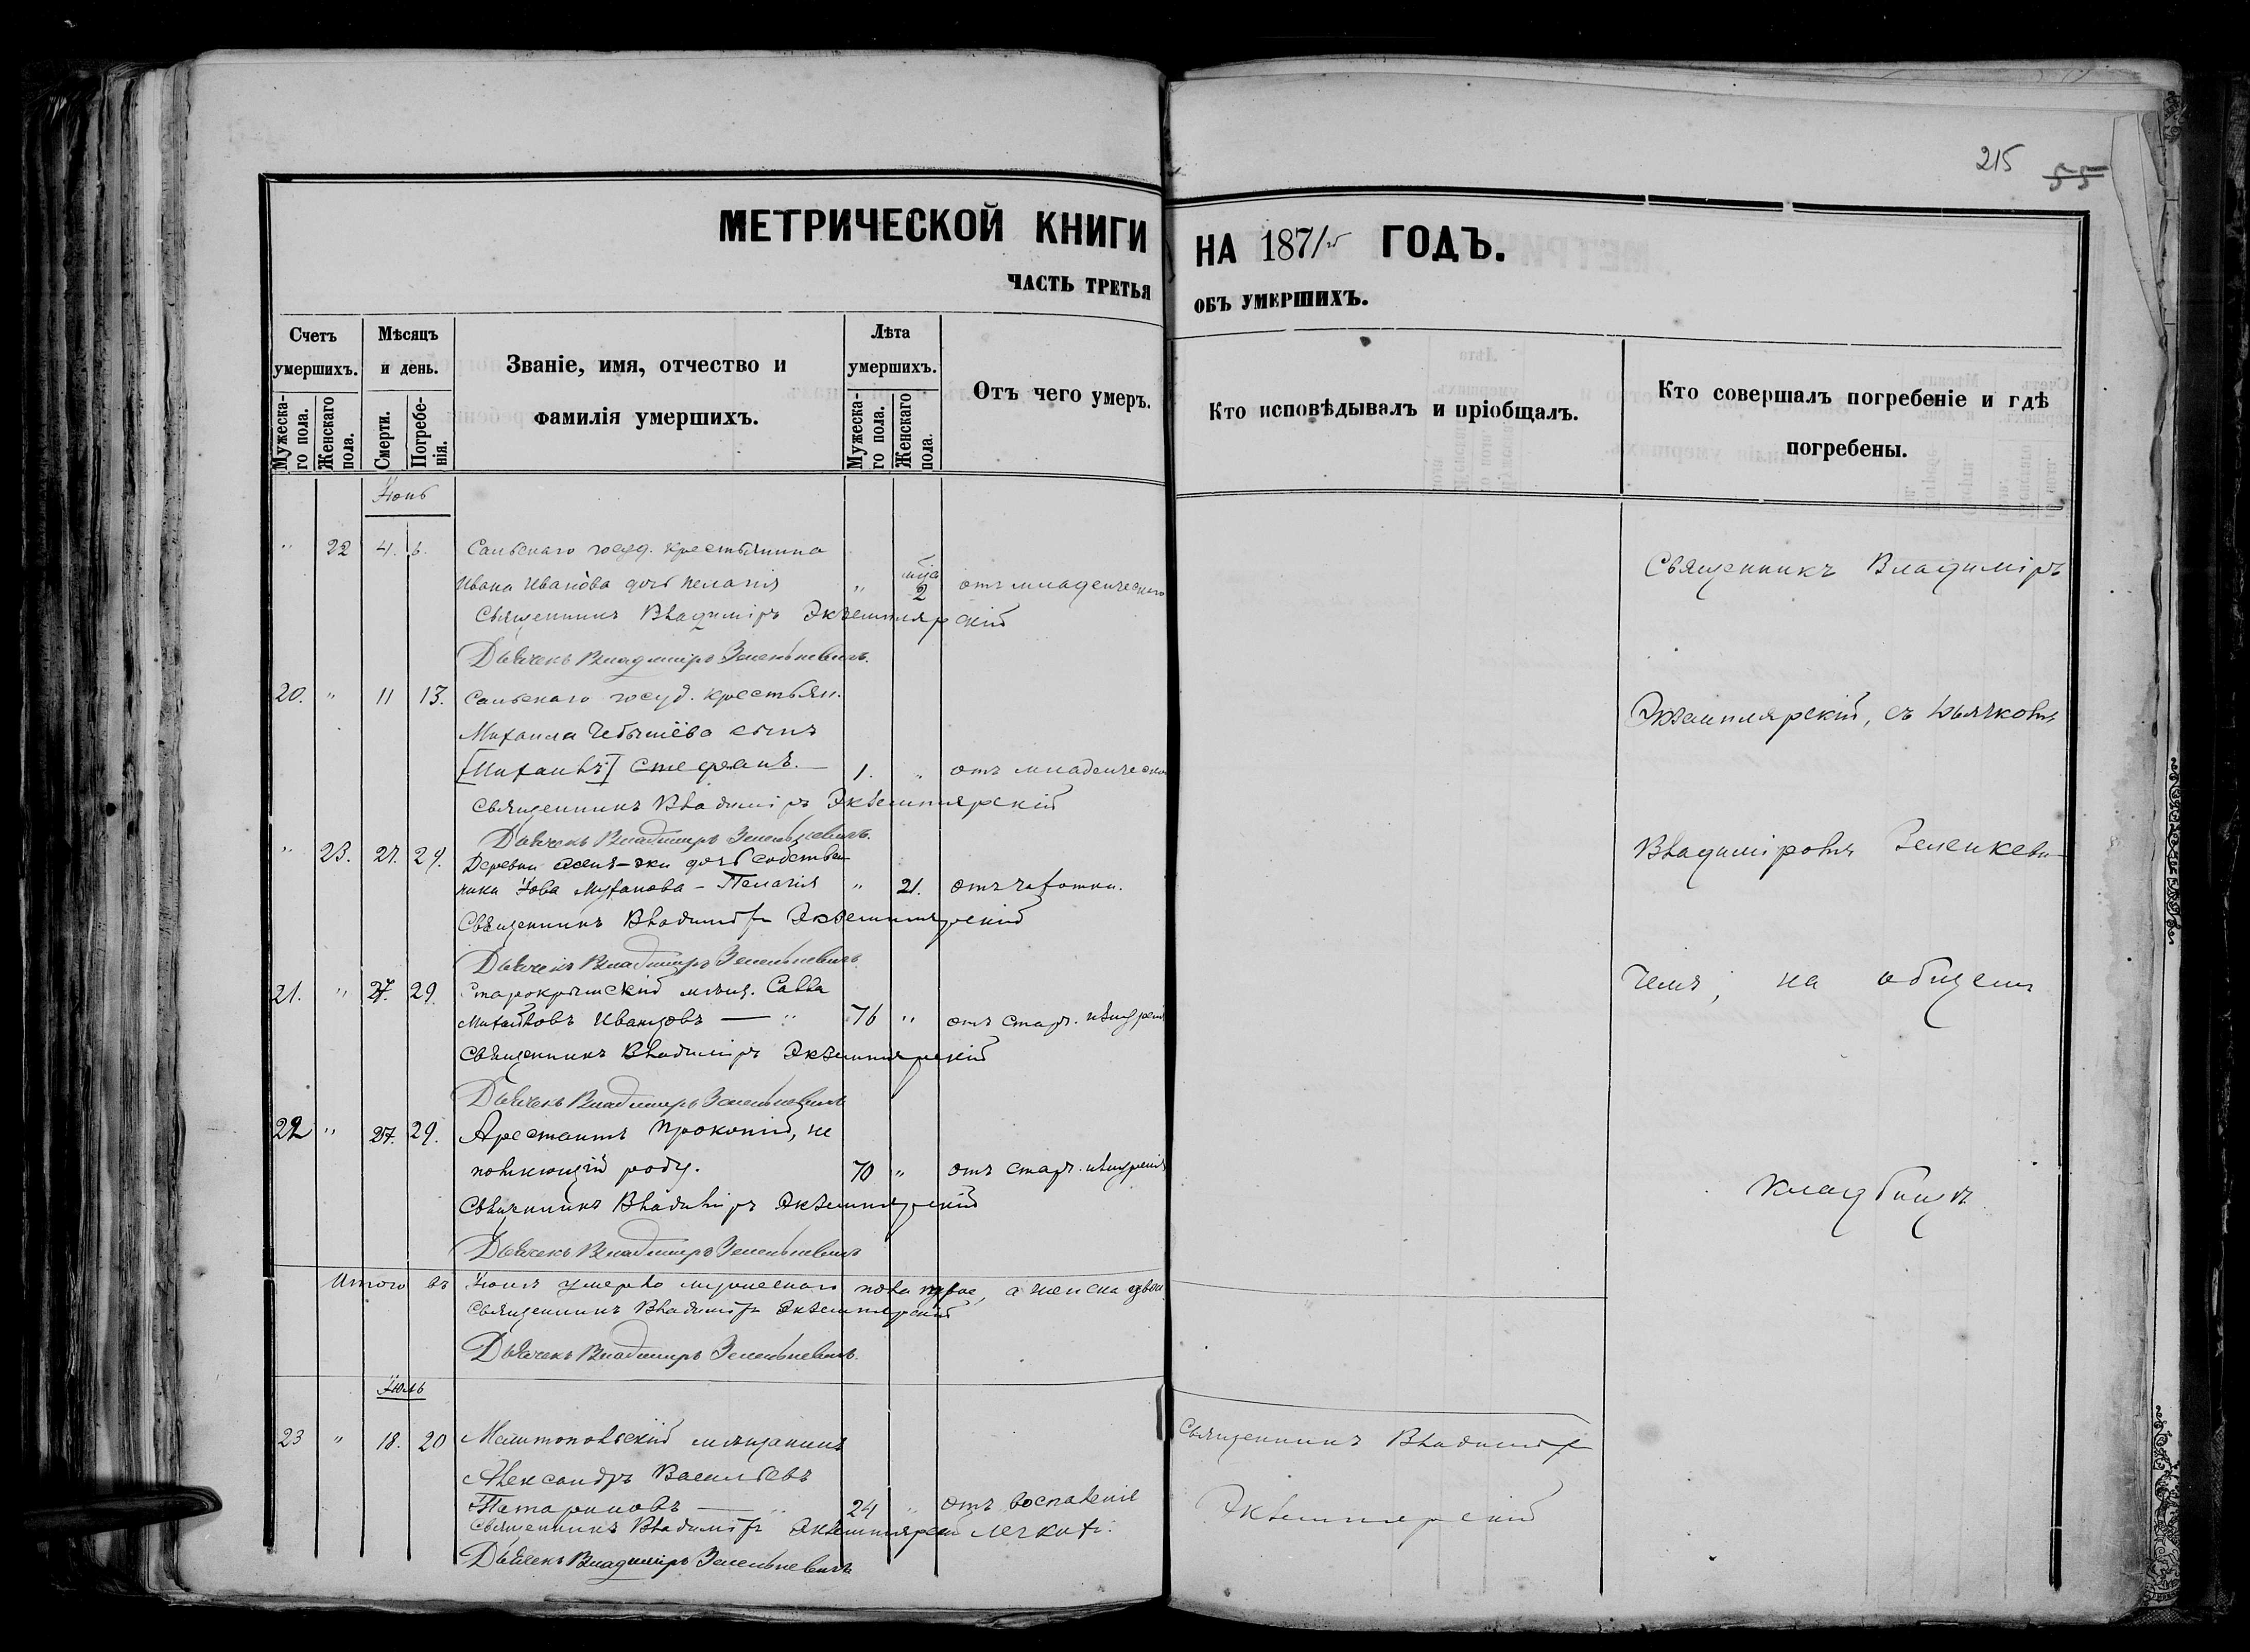 215 55
МЕТРИЧЕСКОЙ КНИГИ НА 1871й ГОДЪ.
ЧАСТЬ ТРЕТЬЯ ОБЪ УМЕРШИХЪ.
Счетъ умершихъ.
Мужеска-го пола.
Женскаго пола.
Мѣсяцъ и день.
Смерти.
Погребе-нія.
Званіе, имя, отчество и фамилія умершихъ.
Лѣта умершихъ.
Мужеска-го пола.
Женскаго пола.
Отъ чего умеръ.
Кто исповѣдывалъ и пріобщалъ.
Кто совершалъ погребеніе и гдѣ погребены.
Іюнь
" 22 4. 6. госуд. крестьянина
Ивана Иванова дочь Пелагія " 2 отъ младенческаго
Священникъ Владиміръ Экземплярскій
Дьячекъ Владиміръ Зеленкевичъ.
20. " 11 13. госуд. крестьян.
Михаила Чебышёва сынъ
[Михаилъ] Стефанъ. — 1. " отъ младенческаго
Священникъ Владиміръ Экземплярскій
Дьячекъ Владиміръ Зеленкевичъ.
" 23. 27. 29. Деревни дочь собствен-
ника Іова Муханова - Пелагія " 21. отъ чахотки.
Священникъ Владиміръ Экземплярскій
Дьячекъ Владиміръ Зеленкевичъ
21. " 27. 29. Старокрымскій мѣщ. Савва
Михайловъ Иванцовъ — " 76 " отъ стар.
Священникъ Владиміръ Экземплярскій
Дьячекъ Владиміръ Зеленкевичъ
22 " 27. 29. Арестантъ Прокопій, не
помнющій роду. 70 " отъ стар.
Священникъ Владиміръ Экземплярскій
Дьячекъ Владиміръ Зеленкевичъ
Итого въ Іюнѣ умерло мужескаго пола трое, а женска двои
Священникъ Владиміръ Экземплярскій
Дьячекъ Владиміръ Зеленкевичъ.
Іюль
23 " 18. 20 Мелитопольскій мѣщанинъ
Александръ Васильевъ
Татариновъ — " 24 " отъ воспаленіе
Священникъ Владиміръ Экземплярскій легкихъ.
Дьячекъ Владиміръ Зеленкевичъ
Священникъ Владиміръ
Экземплярскій
Священникъ Владиміръ
Экземплярскій, съ дьячкомъ
Владиміромъ Зеленкеви-
чемъ, на общемъ
кладбищѣ.